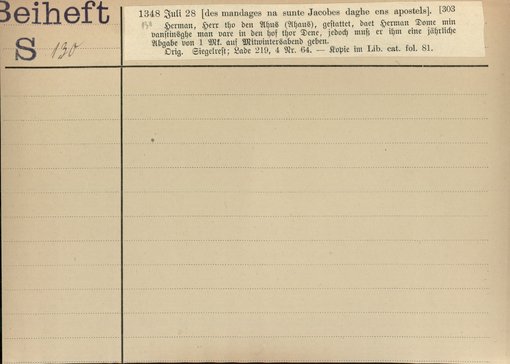 Beiheft
S 130
1348 Juli 28 [des mandages na sunte Jacobes daghe ens apostels]. [303
Herman, Herr tho den Ahus (Ahaus), gestattet, daet Herman Dome min
vanstinsghe man vare in den hof thor Dene, jedoch muß er ihm eine jährliche
Abgabe von 1 Mk. auf Mitwintersabend geben.
Orig. Siegelrest; Lade 219, 4 Nr. 64. — Kopie im Lib. cat. fol. 81.